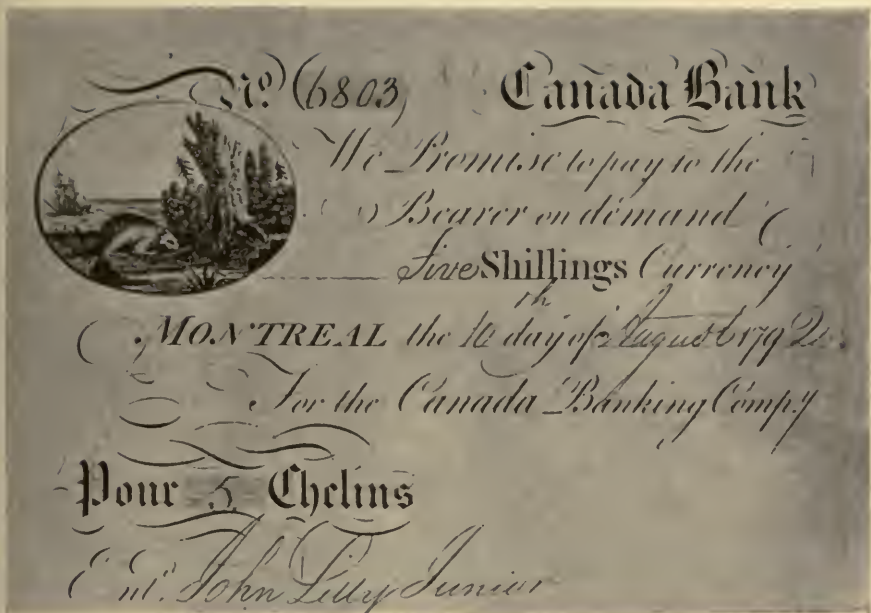 No. (6803) Canada Bank
We Promise to pay to the
Bearer on demand
Five Shillings Currency
MONTREAL the 10th day of August 1792
For the Canada Banking Compy
Pour 5 Chelins
Entd. John Lilly Junior